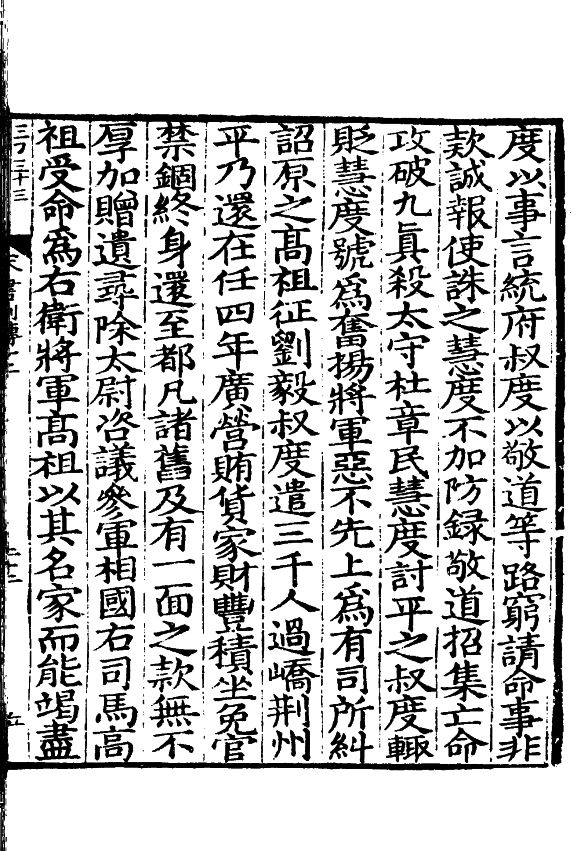 度以事言統府叔度以敬道等路窮請命事非
款誠報使誅之慧度不加防録敬道招集亡命
攻破九真殺太守杜章民慧度討平之叔度輙
貶慧度號爲奮揚將軍惡不先上爲有司所糾
詔原之髙祖征劉毅叔度遣三千人過嶠荆州
平乃還在任四年廣營賄貨家財豐積坐免官
禁錮終身還至都凡諸舊及有一面之款無不
厚加贈遺尋除太尉咨議參軍相國右司馬高
祖受命爲右衛將軍髙祖以其名家而能竭盡